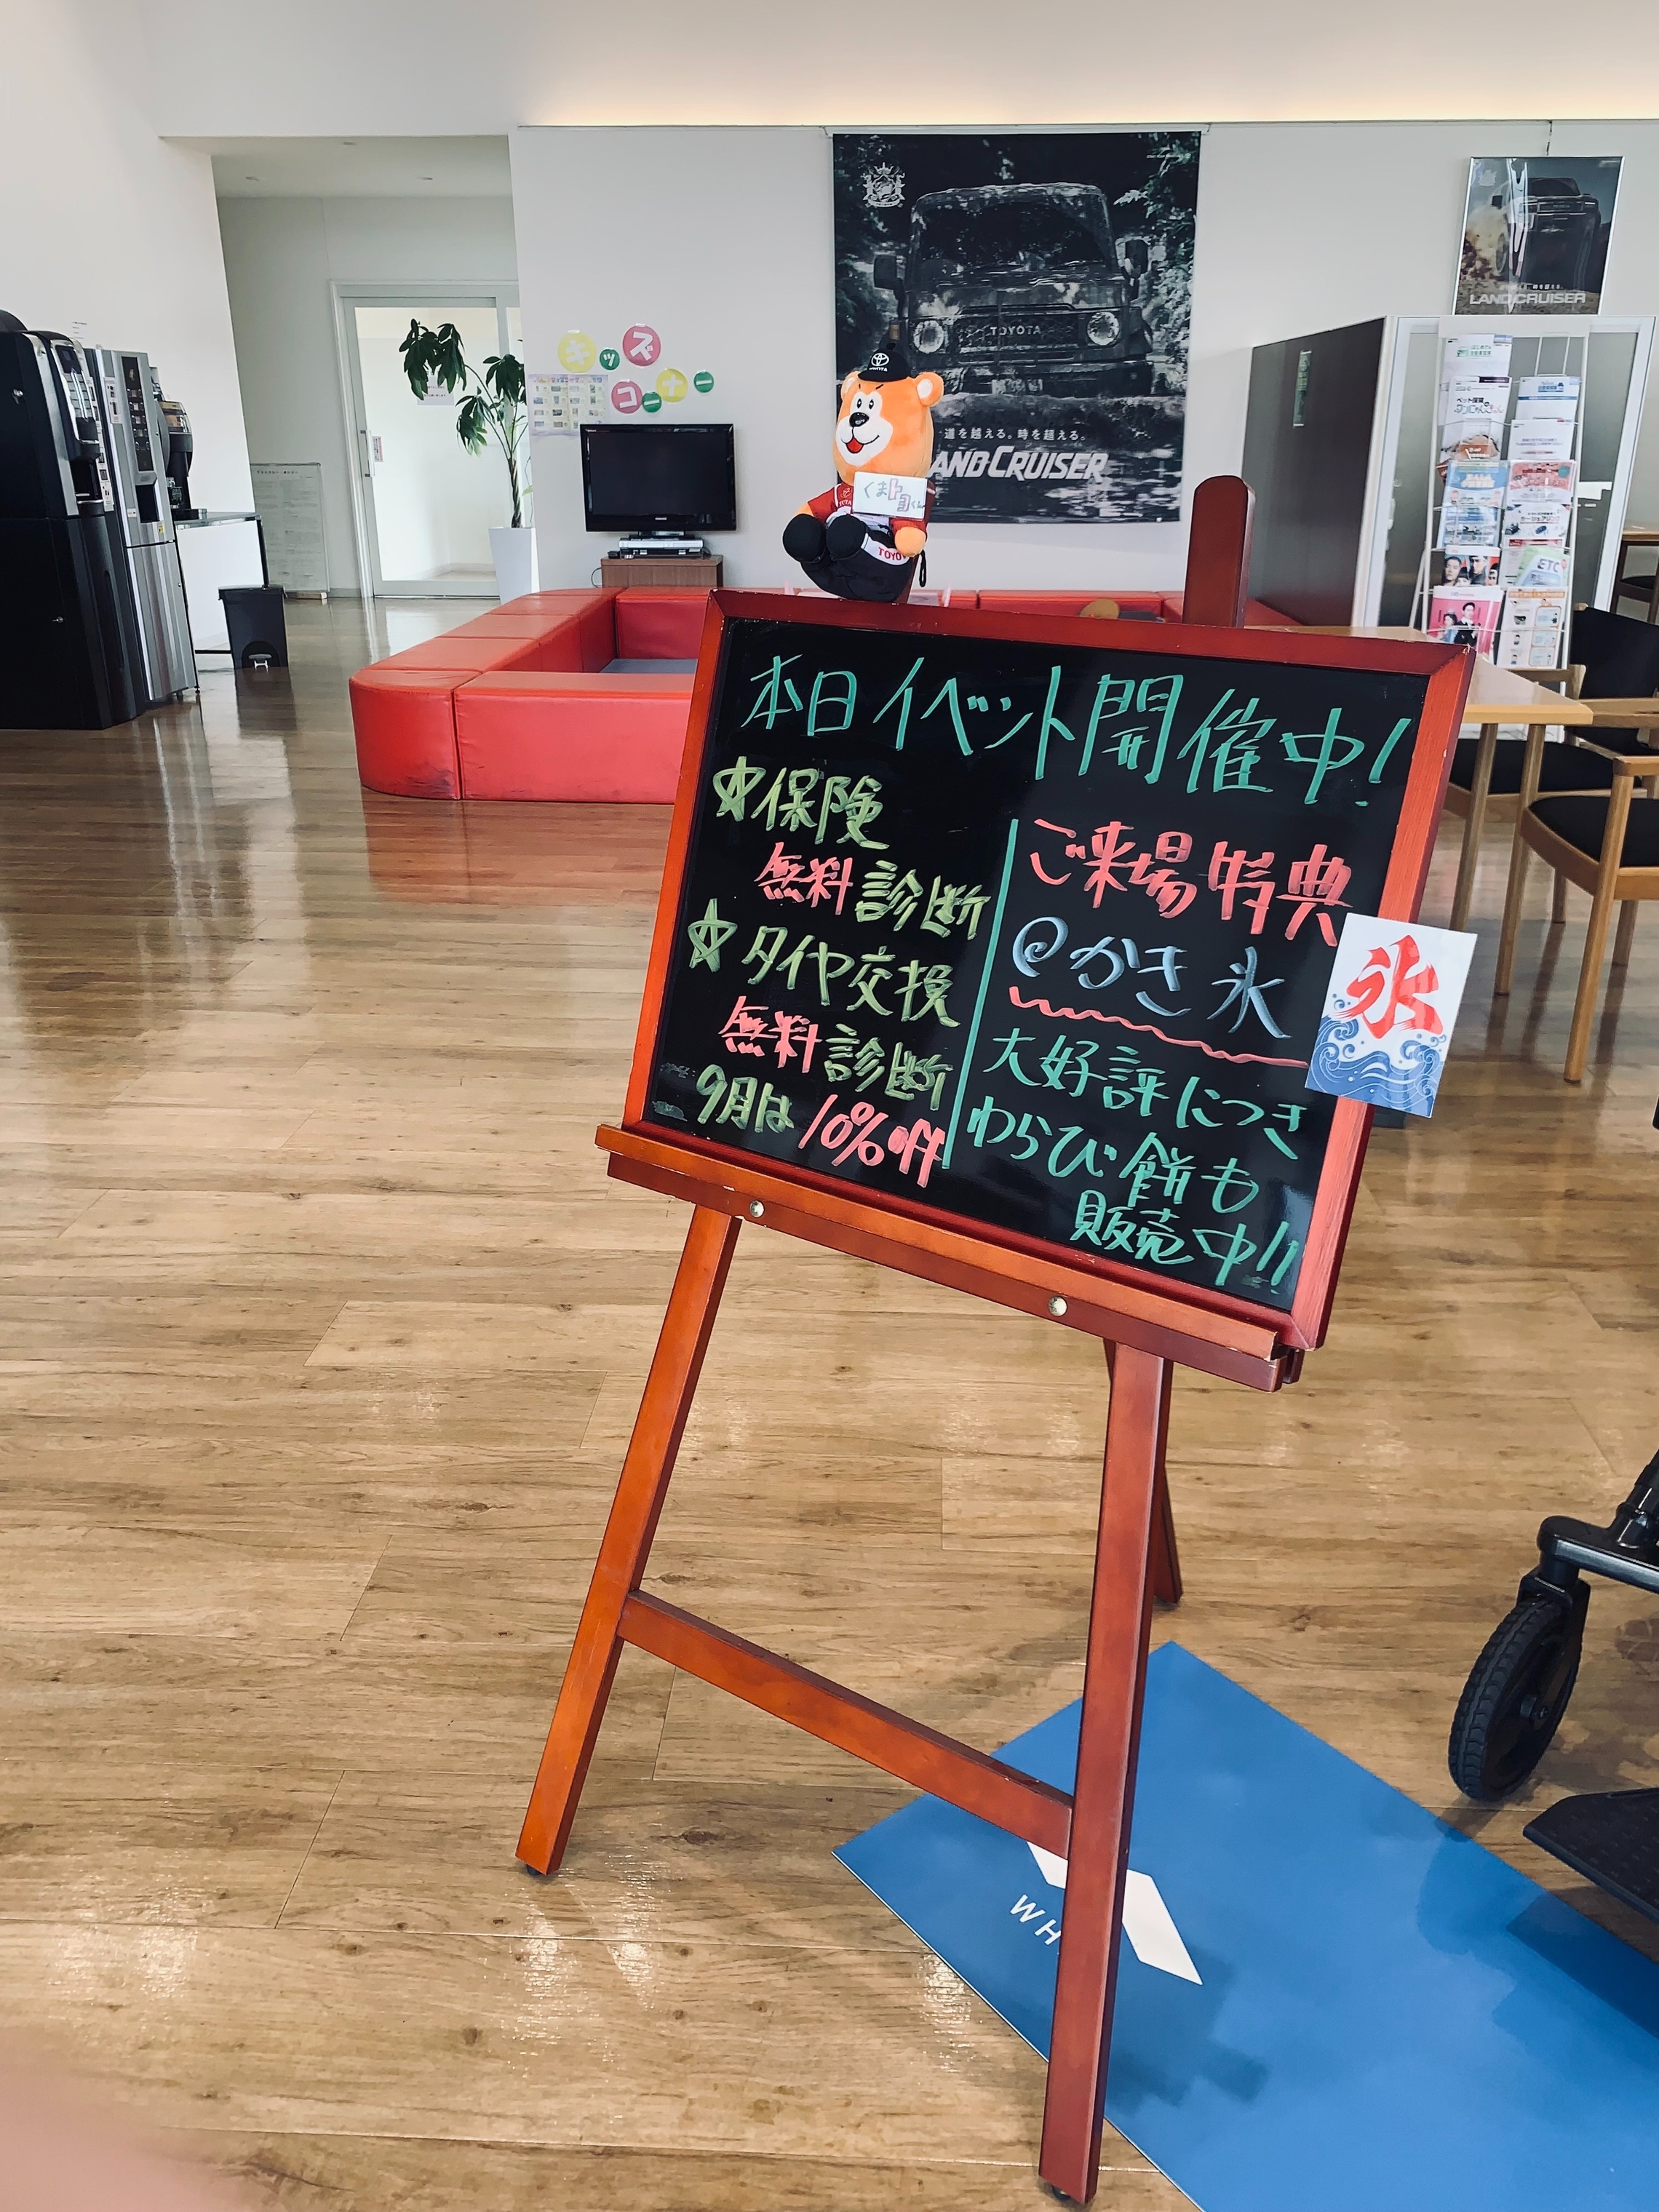 本日イベント開催中!
☆保険
無料診断
☆タイヤ交換
無料診断
9月は10%off
ご来場特典
@かき氷
大好評につき
わらび餅も
販売中!!
氷
くまトヨくん
TOYOTA
道を越える。時を超える。
LAND CRUISER
TOYOTA
キッズ
コーナー
LAND CRUISER
ペット保険
ETC
WH